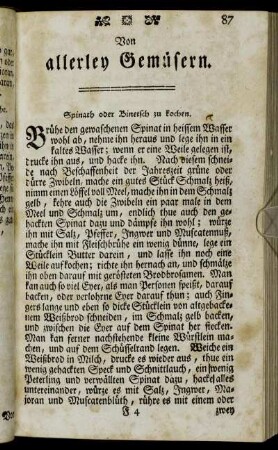 87
Von
allerley Gemüsern.
Spinath oder Binetsch zu kochen.
Brühe den gewaschenen Spinat in heissem Wasser
wohl ab, nehme ihn heraus und lege ihn in ein
kaltes Wasser; wenn er eine Weile gelegen ist,
drucke ihn aus, und hacke ihn. Nach diesem schnei-
de nach Beschaffenheit der Jahrszeit grüne oder
dürre Zwibeln, mache ein gutes Stück Schmalz heiß,
nimm einen Löffel voll Meel, mache ihn in dem Schmalz
gelb, kehre auch die Zwibeln ein paar male in dem
Meel und Schmalz um, endlich thue auch den ge-
hackten Spinat dazu und dämpfe ihn wohl; würze
ihn mit Salz, Pfeffer, Ingwer und Muscatennuß,
mache ihn mit Fleischbrühe ein wenig dünne, lege ein
Stücklein Butter darein, und lasse ihn noch eine
Weile aufkochen; richte ihn hernach an, und schmälze
ihn oben darauf mit gerösteten Brodbrosamen. Man
kan auch so viel Eyer, als man Personen speißt, darauf
backen, oder verlohrne Eyer darauf thun; auch Fin-
gers lange und eben so dicke Stücklein von altgebacke-
nem Weißbrod schneiden, im Schmalz gelb backen,
und zwischen die Eyer auf dem Spinat her stecken.
Man kan ferner nachstehende kleine Würstlein ma-
chen, und auf dem Schüsselrand legen. Weiche ein
Weißbrod in Milch, drucke es wieder aus, thue ein
wenig gehackten Speck und Schnittlauch, ein wenig
Peterling und verwällten Spinat dazu, hacke alles
untereinander, würze es mit Salz, Ingwer, Ma-
joran und Muscatenblüth, rühre es mit einem oder
F 4 zwey